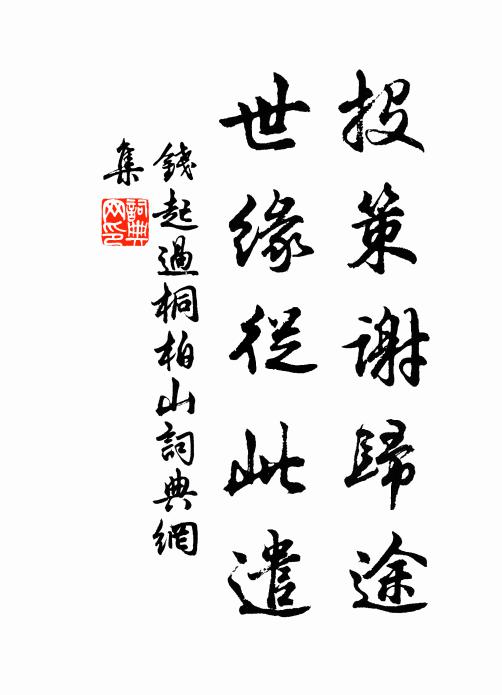 投策謝歸途
世緣從此遣
錢起過桐柏山詞典網
集
詞典網印